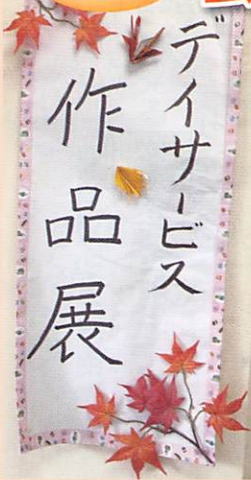 デイサービス
作品展